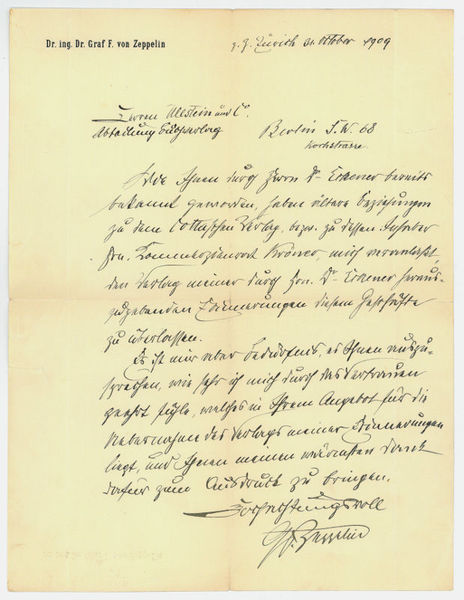 Dr. ing. Dr. Graf F. von Zeppelin
z. Z. Zürich 31. October 1909
Herren Ullstein und Co
Abteilung Buchverlag
Berlin S.W. 68
Kochstrasse
Wie Ihnen durch Herrn Dr Eckener bereits
bekannt geworden, haben ältere Beziehungen
zu dem Cotta'schen Verlag, bezw. zu dessen Inhaber
Hrn. Kommerzienrat Kröner, mich veranlaßt,
den Verlag meiner durch Hrn. Dr Eckener heraus-
zugebenden Erinnerungen diesem Geschäfte
zu überlassen.
Es ist mir aber Bedürfnis, es Ihnen auszu-
sprechen, wie sehr ich mich durch das Vertrauen
geehrt fühle, welches in Ihrem Angebot für die
Uebernahme des Verlags meiner Erinnerungen
liegt, und Ihnen meinen wärmsten Dank
dafür zum Ausdruck zu bringen.
Hochachtungsvoll
Gf. Zeppelin